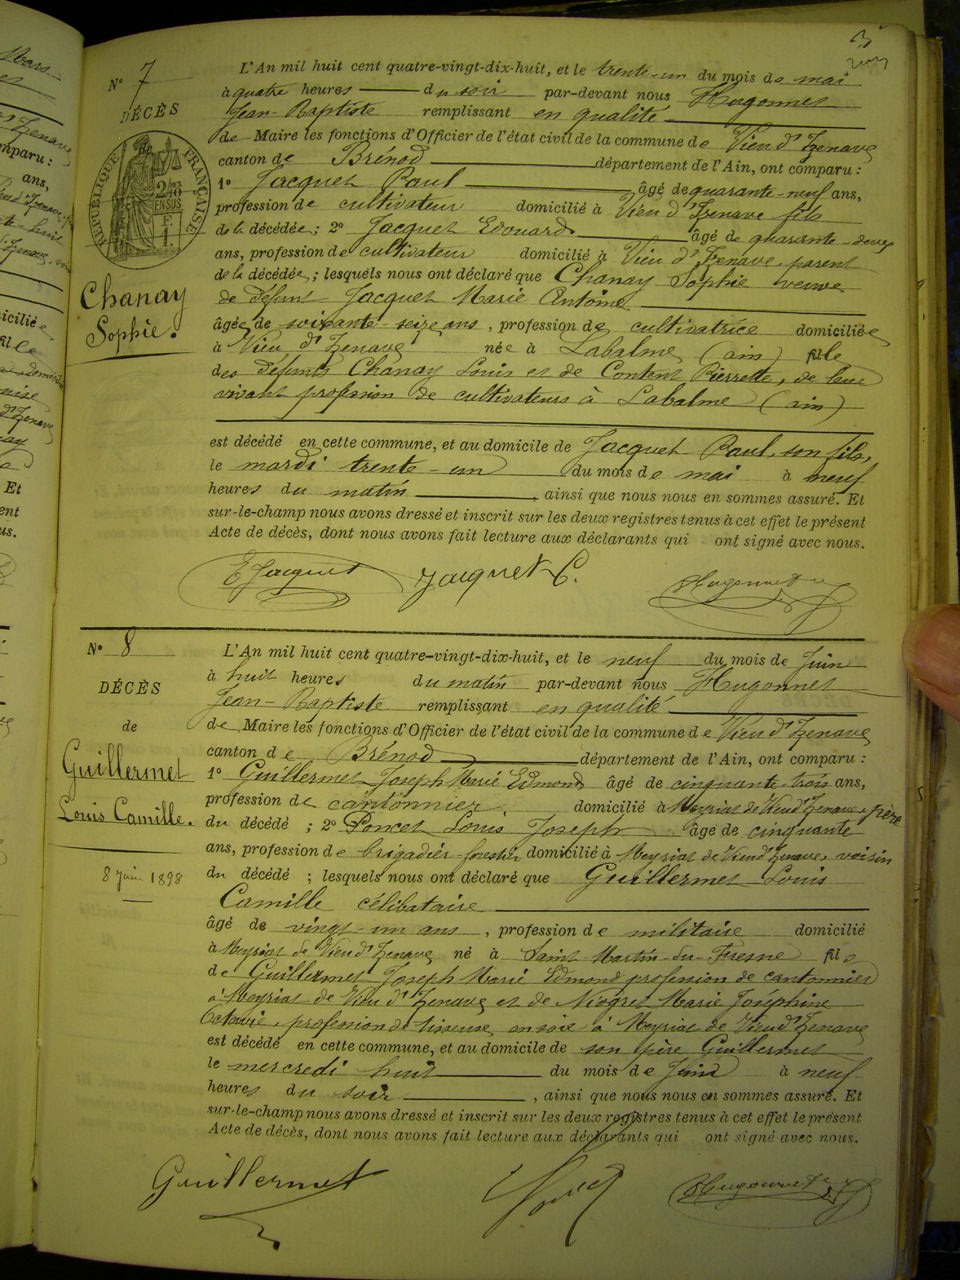 N° 7
DÉCÈS
RÉPUBLIQUE FRANÇAISE
Chanay
Sophie.
L'An mil huit cent quatre-vingt-dix-huit, et le trente-un du mois de mai
à quatre heures du soir par-devant nous Hugonnet
Jean-Baptiste remplissant en qualité
de Maire les fonctions d'Officier de l'état civil de la commune de Vieu d'Izenave
canton de Brénod département de l'Ain, ont comparu :
1° Jacquet Paul âgé de quarante-neuf ans,
profession de cultivateur domicilié à Vieu d'Izenave fils
de la décédée ; 2° Jacquet Edouard âgé de quarante-deux
ans, profession de cultivateur domicilié à Vieu d'Izenave, parent
de la décédée ; lesquels nous ont déclaré que Chanay Sophie veuve
de défunt Jacquet Marie Antoine
âgée de soixante-seize ans, profession de cultivatrice domiciliée
à Vieu d'Izenave née à Labalme (ain) fille
des défunts Chanay Louis et de Content Pierrette, de leur
vivant profession de cultivateurs à Labalme (ain)
est décédé en cette commune, et au domicile de Jacquet Paul, son fils,
le mardi trente-un du mois de mai à neuf
heures du matin, ainsi que nous nous en sommes assuré. Et
sur-le-champ nous avons dressé et inscrit sur les deux registres tenus à cet effet le présent
Acte de décès, dont nous avons fait lecture aux déclarants qui ont signé avec nous.
E Jacquet Jacquet P. Hugonnet
N° 8
DÉCÈS
de
Guillermet
Louis Camille.
8 Juin 1898
L'An mil huit cent quatre-vingt-dix-huit, et le neuf du mois de Juin
à huit heures du matin par-devant nous Hugonnet
Jean-Baptiste remplissant en qualité
de Maire les fonctions d'Officier de l'état civil de la commune de Vieu d'Izenave
canton de Brénod département de l'Ain, ont comparu :
1° Guillermet Joseph Marie Edmond âgé de cinquante-trois ans,
profession de cantonnier domicilié à Meyriat de Vieu d'Izenave, père
du décédé ; 2° Poncet Louis Joseph âgé de cinquante
ans, profession de brigadier-forestier domicilié à Meyriat de Vieu d'Izenave, voisin
du décédé ; lesquels nous ont déclaré que Guillermet Louis
Camille célibataire
âgé de vingt-un ans, profession de militaire domicilié
à Meyriat de Vieu d'Izenave né à Saint-Martin-du-Fresne fils
de Guillermet Joseph Marie Edmond profession de cantonnier
à Meyriat de Vieu d'Izenave et de Niogret Marie Joséphine
Octavie, profession de tisseuse en soie à Meyriat de Vieu d'Izenave
est décédé en cette commune, et au domicile de son père Guillermet
le mercredi huit du mois de Juin à neuf
heures du soir, ainsi que nous nous en sommes assuré. Et
sur-le-champ nous avons dressé et inscrit sur les deux registres tenus à cet effet le présent
Acte de décès, dont nous avons fait lecture aux déclarants qui ont signé avec nous.
Guillermet Poncet Hugonnet